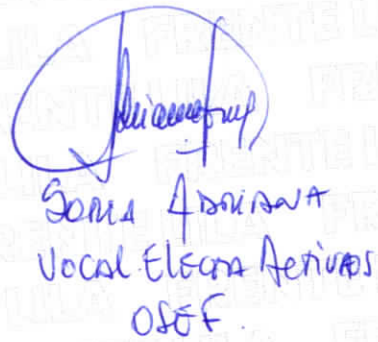 SORIA ADRIANA
VOCAL ELECTA ACTIVOS
OSEF.